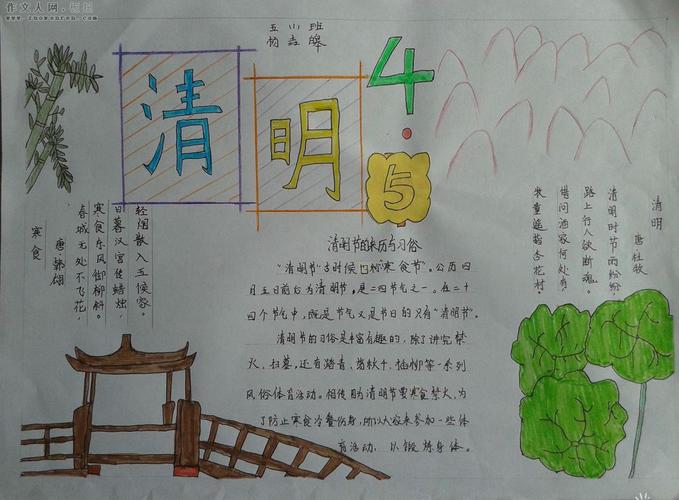 作文人网·板报
www.zuowenren.com
五 小 班
清明
4·5
寒食
唐·韩翃
春城无处不飞花,
寒食东风御柳斜.
日暮汉宫传蜡烛,
轻烟散入五侯家.
清明节的来历与习俗
"清明节"古时候也叫"寒食节"。公历四
月五日前后为清明节,是二四节气之一。在二十
四个节气中,既是节气又是节日的只有"清明节"。
清明节的习俗是丰富有趣的,除了讲究禁
火、扫墓,还有踏青、荡秋千、插柳等一系列
风俗体育活动。相传因为清明节要寒食禁火,为
了防止寒食冷餐伤身,所以大家来参加一些体
育活动,以锻炼身体。
清明
唐杜牧
清明时节雨纷纷,
路上行人欲断魂。
借问酒家何处有,
牧童遥指杏花村.